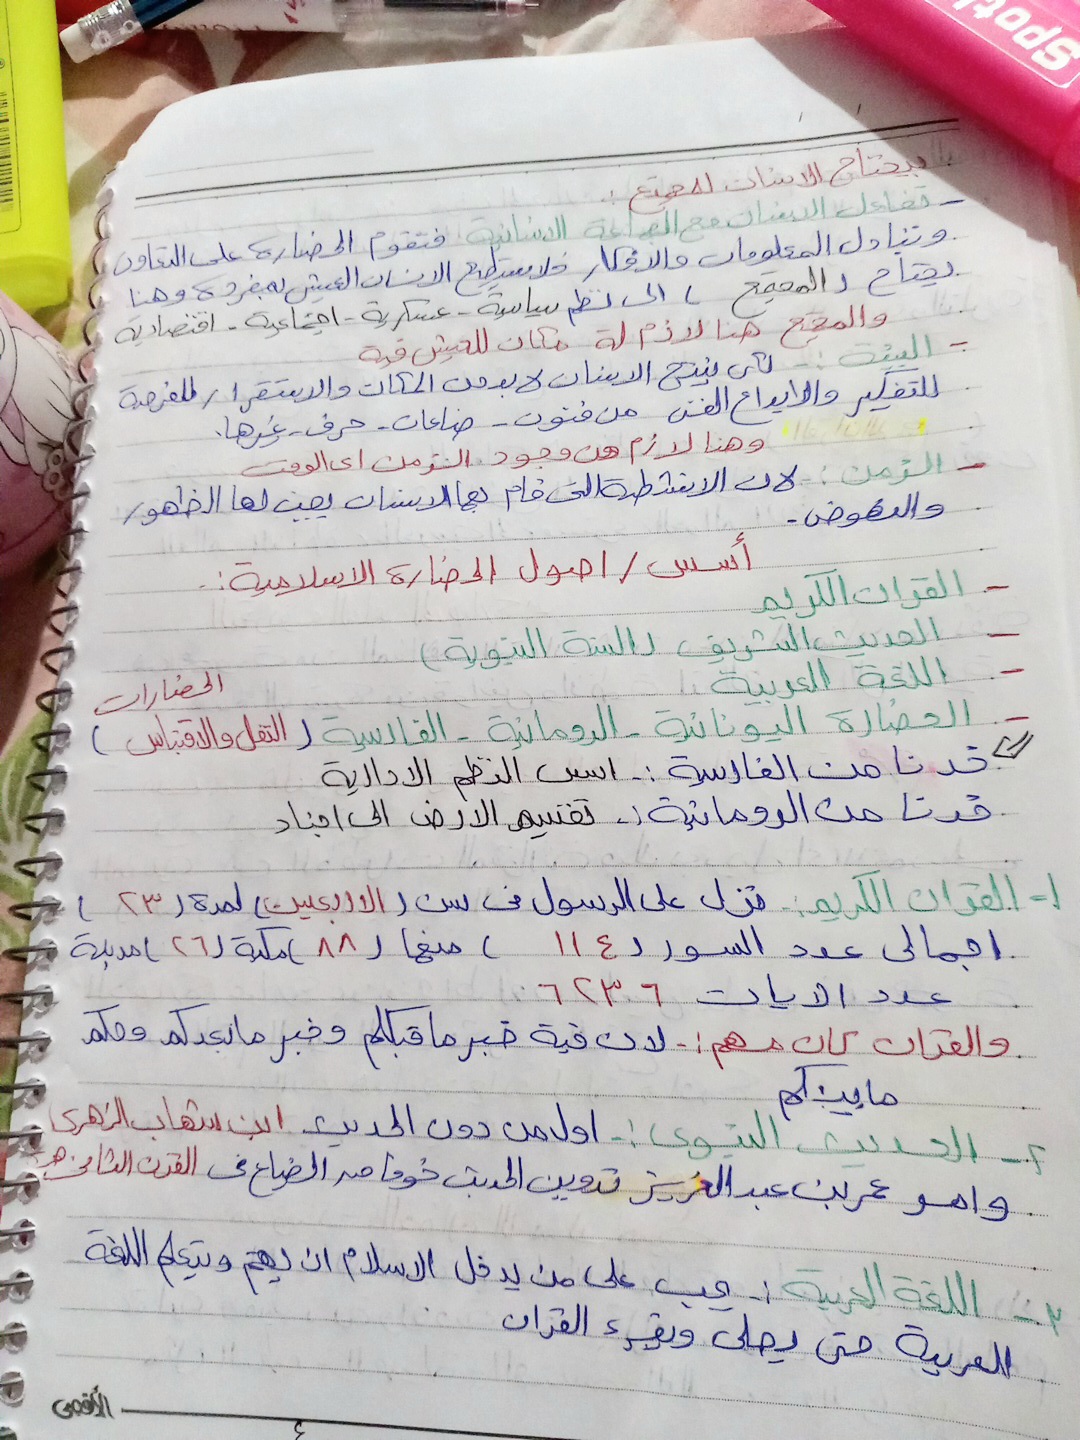 Spot
يحتاج الانسان للمجتمع :
- تفاعل الانسان مع الجماعة الانسانية فتقوم الحضارة على التعاون
وتبادل المعلومات والافكار فلا يستطيع الانسان العيش بمفرده وهنا
يحتاج (المجتمع) الى نظم سياسة - عسكرية - اجتماعية - اقتصادية
والمجتمع هنا لازم لة مكان للعيش فية
- البيئة :- لكى ينتج الانسان لابد من المكان والاستقرار للفرصة
للتفكير والابداع الفنى من فنون - صناعات - حرف - غيرها.
وهنا لازم من وجود الزمن اى الوقت
- الزمن :- لان الانشطة التى قام بها الانسان يجب لها الظهور
والنهوض.
أسس / اصول الحضارة الاسلامية :-
- القران الكريم
- الحديث الشريف (السنة النبوية)
- اللغة العربية
الحضارات
- الحضارة اليونانية - الرومانية - الفارسية (النقل والاقتباس)
خدنا من الفارسة :- اسس النظم الادارية
خدنا من الرومانية :- تقسيم الارض الى اجناد
١- القران الكريم :- نزل على الرسول فى سن (الاربعين) لمدة (٢٣)
اجمالى عدد السور (١١٤) منها (٨٨) مكية (٢٦) مدينة
عدد الايات ٦٢٣٦
والقران كان مهم :- لان فية خبر ما قبلكم وخبر ما بعدكم وحكم
ما بينكم
٢- الحديث النبوى :- اول من دون الحديث ابن شهاب الزهرى
وامر عمر بن عبد العزيز تدوين الحديث خوفا من الضياع فى القرن الثانى هـ
٣- اللغة العربية :- يجب على من يدخل الاسلام ان يهتم ويتعلم اللغة
العربية حتى يصلى ويقرء القران
الأقصى
٤